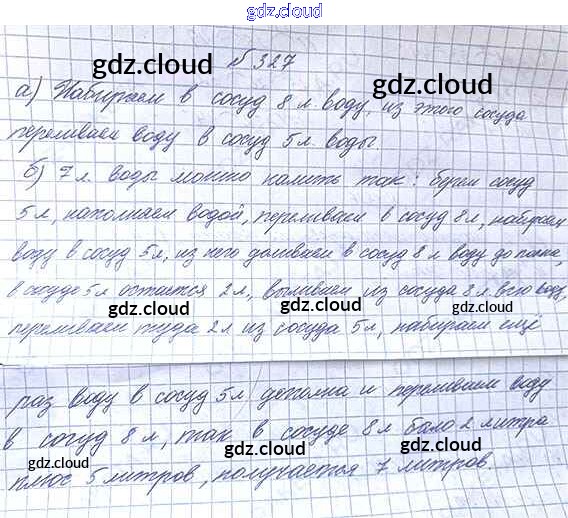 gdz.cloud
№ 327
gdz.cloud
gdz.cloud
а) Набираем в сосуд 8 л воду, из этого сосуда
переливаем воду в сосуд 5 л воды.
gdz.cloud
gdz.cloud
б) 7 л. воды можно налить так: берем сосуд
5 л, наполняем водой, переливаем в сосуд 8 л, набираем
воду в сосуд 5 л, из него доливаем в сосуд 8 л воду до полна,
в сосуде 5 л остаётся 2 л, выливаем из сосуда 8 л всю воду,
gdz.cloud
gdz.cloud
gdz.cloud
переливаем туда 2 л из сосуда 5 л, набираем ещё
раз воду в сосуд 5 л дополна и переливаем воду
gdz.cloud
gdz.cloud
в сосуд 8 л, так в сосуде 8 л было 2 литра
gdz.cloud
gdz.cloud
gdz.cloud
плюс 5 литров, получается 7 литров.
gdz.cloud